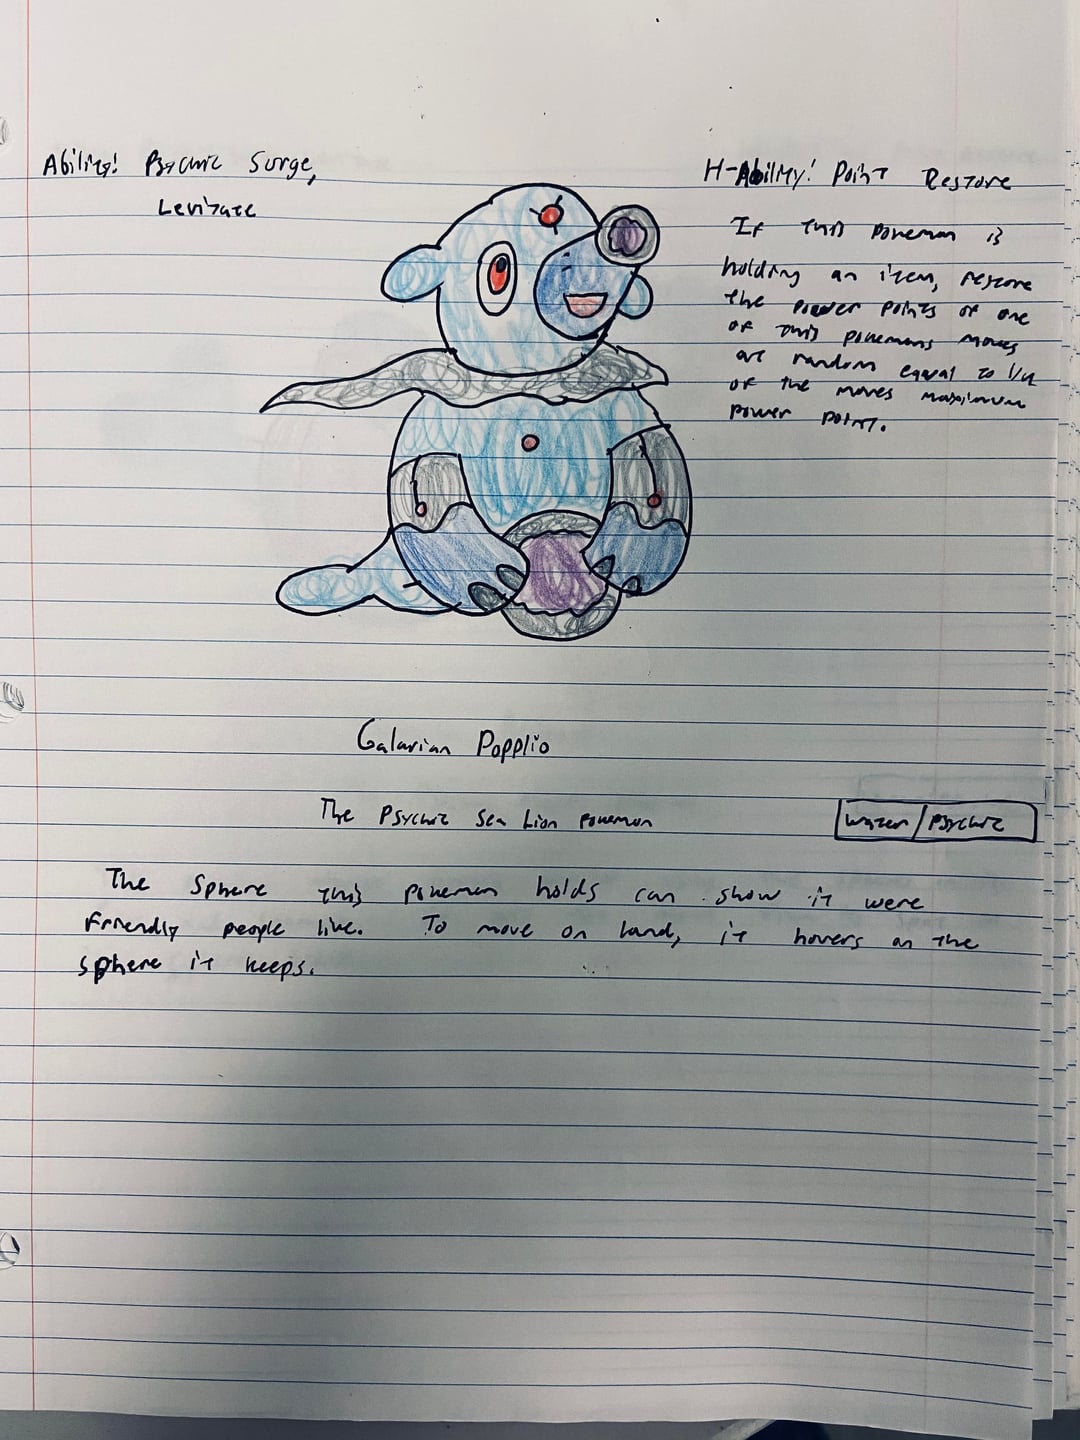 Ability: Psychic Surge,
Levitate
H-Ability: Point Restore
If this pokemon is
holding an item, restore
the power points of one
of this pokemons moves
at random equal to 1/4
of the moves maximum
power point.
Galarian Popplio
The Psychic Sea Lion pokemon
Water/Psychic
The Sphere this pokemon holds can show it were
friendly people live. To move on land, it hovers on the
sphere it keeps.